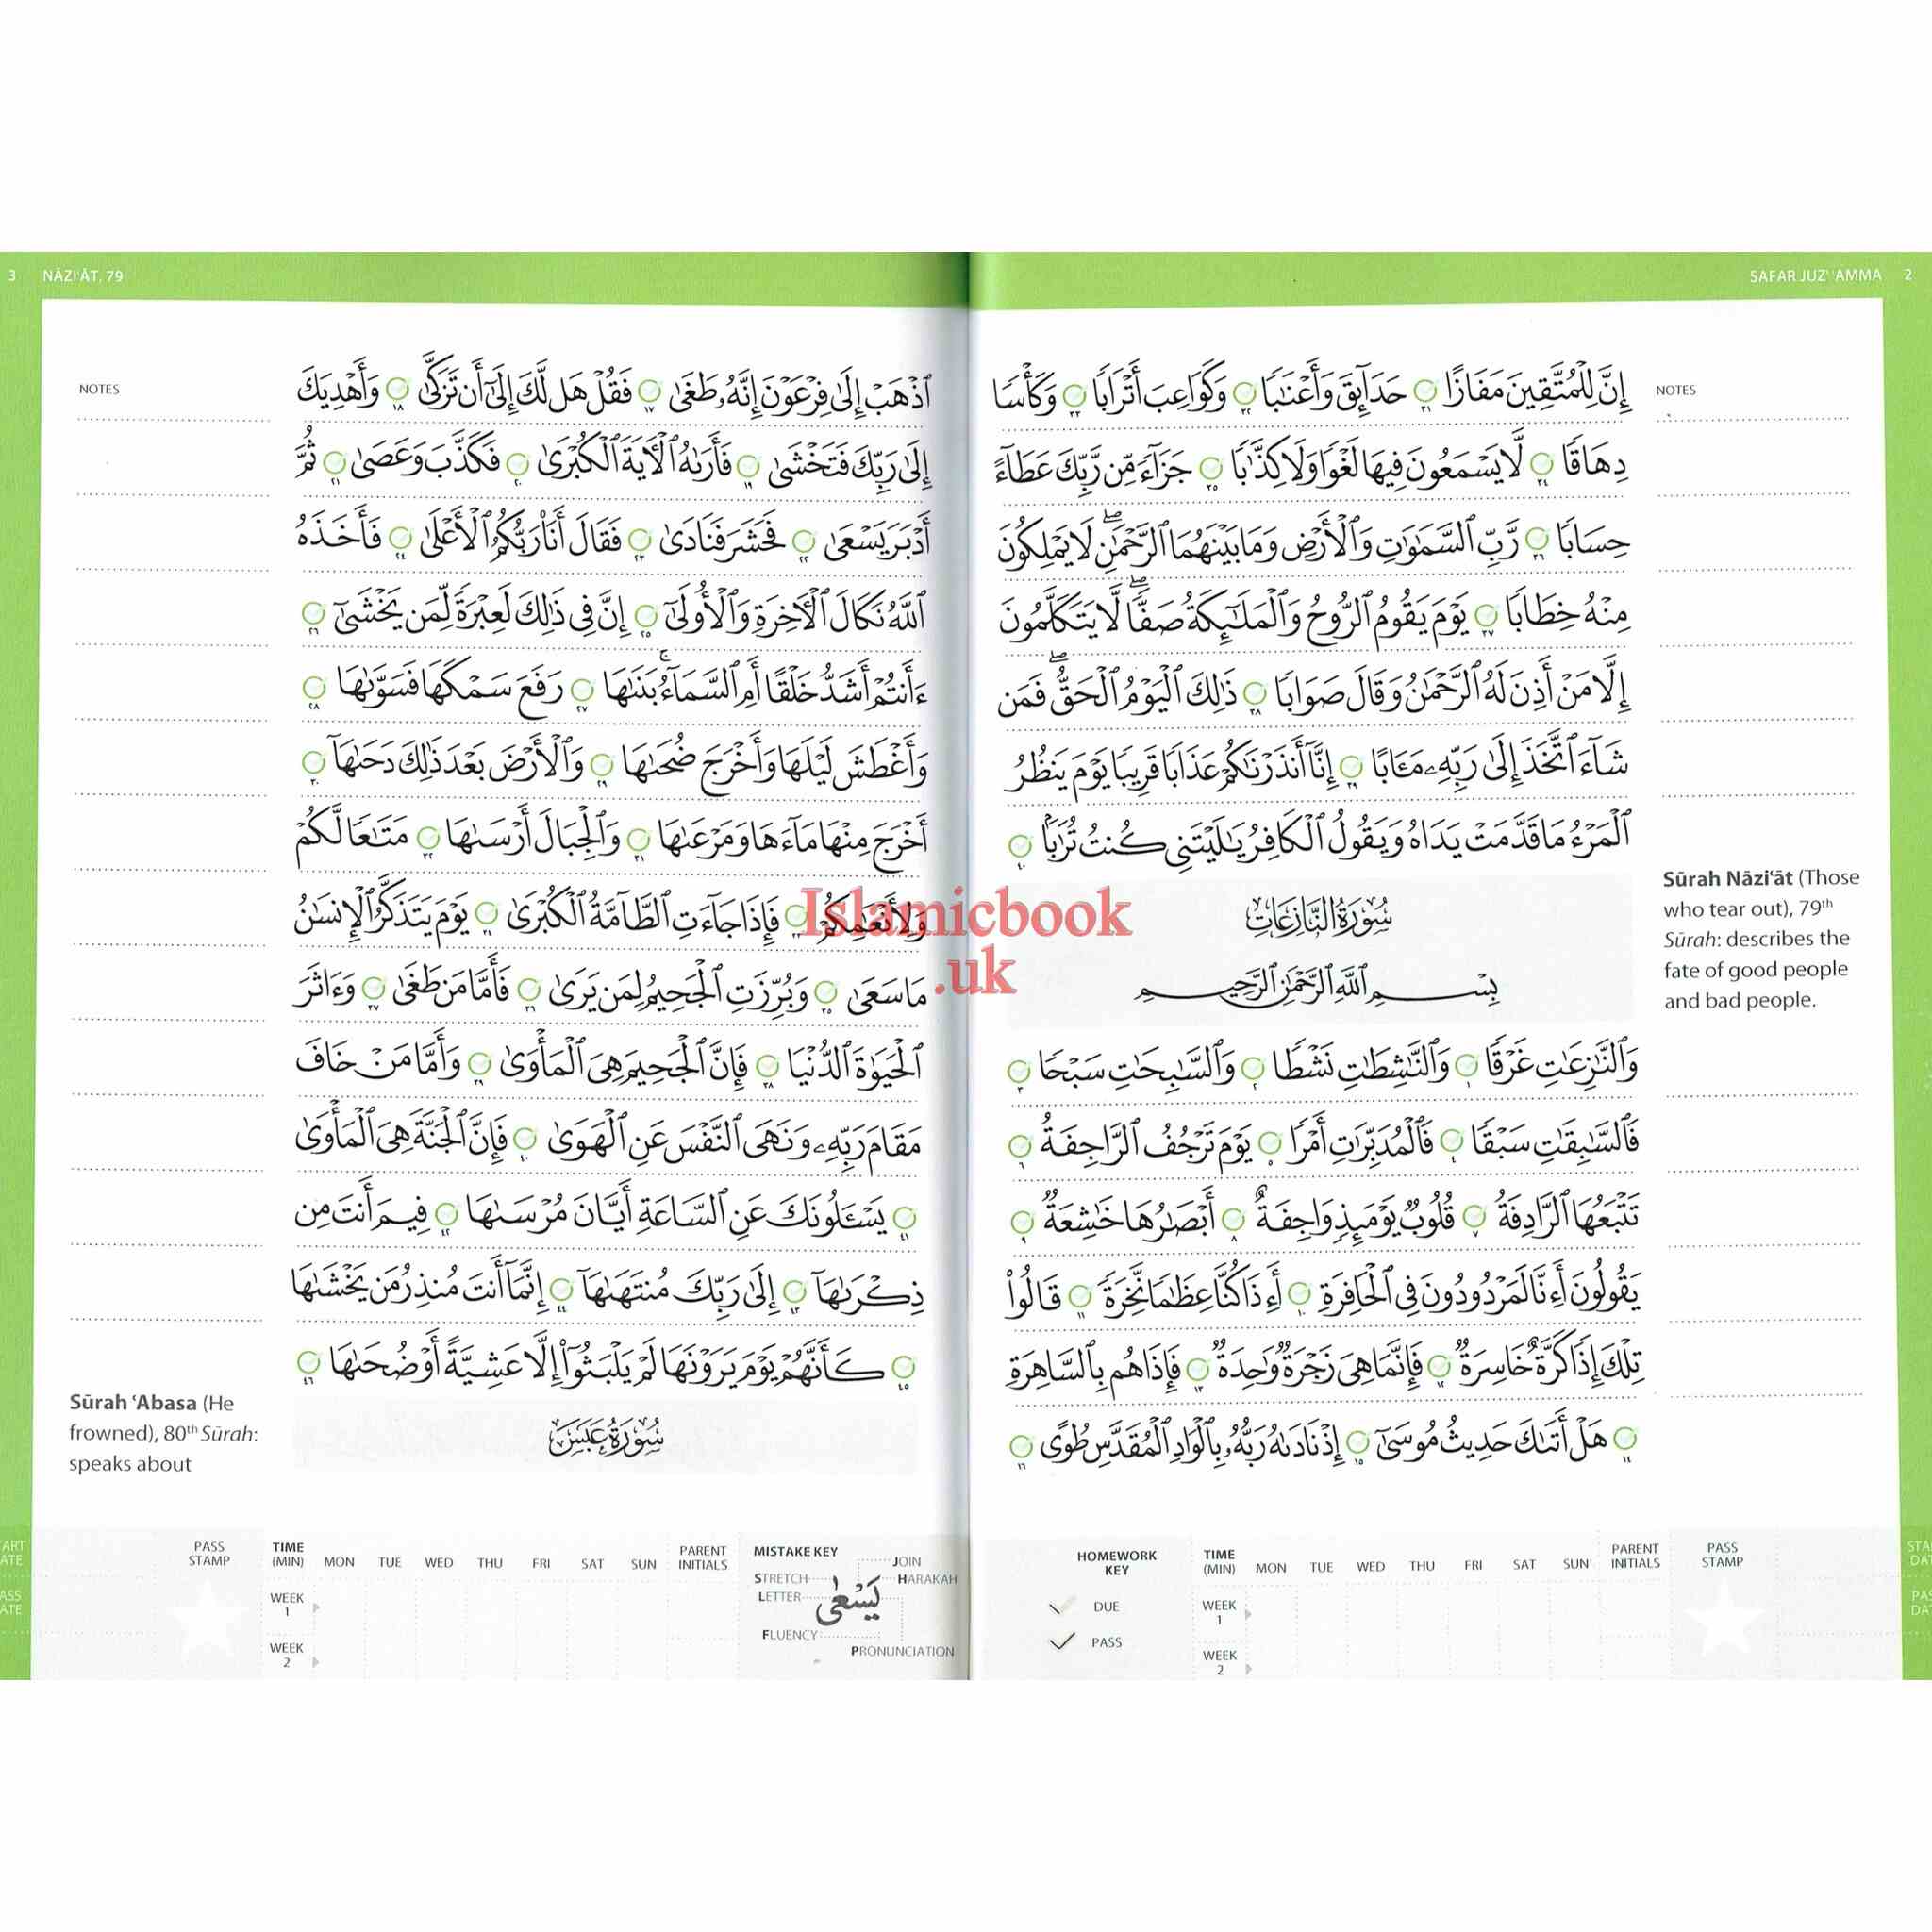 SAFAR JUZ' 'AMMA 2
NOTES
إِنَّ لِلْمُتَّقِينَ مَفَازًا ٣١ حَدَآئِقَ وَأَعْنَٰبًا ٣٢ وَكَوَاعِبَ أَتْرَابًا ٣٣ وَكَأْسًا
دِهَاقًا ٣٤ لَّا يَسْمَعُونَ فِيهَا لَغْوًا وَلَا كِذَّٰبًا ٣٥ جَزَآءً مِّن رَّبِّكَ عَطَآءً
حِسَابًا ٣٦ رَّبِّ ٱلسَّمَٰوَٰتِ وَٱلْأَرْضِ وَمَا بَيْنَهُمَا ٱلرَّحْمَٰنِۖ لَا يَمْلِكُونَ
مِنْهُ خِطَابًا ٣٧ يَوْمَ يَقُومُ ٱلرُّوحُ وَٱلْمَلَٰٓئِكَةُ صَفًّاۖ لَّا يَتَكَلَّمُونَ
إِلَّا مَنْ أَذِنَ لَهُ ٱلرَّحْمَٰنُ وَقَالَ صَوَابًا ٣٨ ذَٰلِكَ ٱلْيَوْمُ ٱلْحَقُّۖ فَمَن
شَآءَ ٱتَّخَذَ إِلَىٰ رَبِّهِۦ مَـَٔابًا ٣٩ إِنَّآ أَنذَرْنَٰكُمْ عَذَابًا قَرِيبًا يَوْمَ يَنظُرُ
ٱلْمَرْءُ مَا قَدَّمَتْ يَدَاهُ وَيَقُولُ ٱلْكَافِرُ يَٰلَيْتَنِي كُنتُ تُرَٰبًۢا ٤٠
سُورَةُ النَّازِعَاتِ
بِسْمِ ٱللَّهِ ٱلرَّحْمَٰنِ ٱلرَّحِيمِ
Sūrah Nāziʿāt (Those
who tear out), 79th
Sūrah: describes the
fate of good people
and bad people.
وَٱلنَّٰزِعَٰتِ غَرْقًا ١ وَٱلنَّٰشِطَٰتِ نَشْطًا ٢ وَٱلسَّٰبِحَٰتِ سَبْحًا ٣
فَٱلسَّٰبِقَٰتِ سَبْقًا ٤ فَٱلْمُدَبِّرَٰتِ أَمْرًا ٥ يَوْمَ تَرْجُفُ ٱلرَّاجِفَةُ ٦
تَتْبَعُهَا ٱلرَّادِفَةُ ٧ قُلُوبٌ يَوْمَئِذٍ وَاجِفَةٌ ٨ أَبْصَٰرُهَا خَٰشِعَةٌ ٩
يَقُولُونَ أَءِنَّا لَمَرْدُودُونَ فِي ٱلْحَافِرَةِ ١٠ أَءِذَا كُنَّا عِظَٰمًا نَّخِرَةً ١١ قَالُوا۟
تِلْكَ إِذًا كَرَّةٌ خَاسِرَةٌ ١٢ فَإِنَّمَا هِيَ زَجْرَةٌ وَٰحِدَةٌ ١٣ فَإِذَا هُم بِٱلسَّاهِرَةِ
١٤ هَلْ أَتَىٰكَ حَدِيثُ مُوسَىٰٓ ١٥ إِذْ نَادَىٰهُ رَبُّهُۥ بِٱلْوَادِ ٱلْمُقَدَّسِ طُوًى ١٦
HOMEWORK
KEY
DUE
PASS
TIME
(MIN) MON TUE WED THU FRI SAT SUN PARENT
INITIALS
WEEK
1
WEEK
2
PASS
STAMP
3 NĀZIʿĀT, 79
NOTES
ٱذْهَبْ إِلَىٰ فِرْعَوْنَ إِنَّهُۥ طَغَىٰ ١٧ فَقُلْ هَل لَّكَ إِلَىٰٓ أَن تَزَكَّىٰ ١٨ وَأَهْدِيَكَ
إِلَىٰ رَبِّكَ فَتَخْشَىٰ ١٩ فَأَرَىٰهُ ٱلْـَٔايَةَ ٱلْكُبْرَىٰ ٢٠ فَكَذَّبَ وَعَصَىٰ ٢١ ثُمَّ
أَدْبَرَ يَسْعَىٰ ٢٢ فَحَشَرَ فَنَادَىٰ ٢٣ فَقَالَ أَنَا۠ رَبُّكُمُ ٱلْأَعْلَىٰ ٢٤ فَأَخَذَهُ
ٱللَّهُ نَكَالَ ٱلْـَٔاخِرَةِ وَٱلْأُولَىٰٓ ٢٥ إِنَّ فِي ذَٰلِكَ لَعِبْرَةً لِّمَن يَخْشَىٰٓ ٢٦
ءَأَنتُمْ أَشَدُّ خَلْقًا أَمِ ٱلسَّمَآءُۚ بَنَىٰهَا ٢٧ رَفَعَ سَمْكَهَا فَسَوَّىٰهَا ٢٨
وَأَغْطَشَ لَيْلَهَا وَأَخْرَجَ ضُحَىٰهَا ٢٩ وَٱلْأَرْضَ بَعْدَ ذَٰلِكَ دَحَىٰهَآ ٣٠
أَخْرَجَ مِنْهَا مَآءَهَا وَمَرْعَىٰهَا ٣١ وَٱلْجِبَالَ أَرْسَىٰهَا ٣٢ مَتَٰعًا لَّكُمْ
وَلِأَنْعَٰمِكُمْ ٣٣ فَإِذَا جَآءَتِ ٱلطَّآمَّةُ ٱلْكُبْرَىٰ ٣٤ يَوْمَ يَتَذَكَّرُ ٱلْإِنسَٰنُ
مَا سَعَىٰ ٣٥ وَبُرِّزَتِ ٱلْجَحِيمُ لِمَن يَرَىٰ ٣٦ فَأَمَّا مَن طَغَىٰ ٣٧ وَءَاثَرَ
ٱلْحَيَوٰةَ ٱلدُّنْيَا ٣٨ فَإِنَّ ٱلْجَحِيمَ هِيَ ٱلْمَأْوَىٰ ٣٩ وَأَمَّا مَنْ خَافَ
مَقَامَ رَبِّهِۦ وَنَهَى ٱلنَّفْسَ عَنِ ٱلْهَوَىٰ ٤٠ فَإِنَّ ٱلْجَنَّةَ هِيَ ٱلْمَأْوَىٰ
٤١ يَسْـَٔلُونَكَ عَنِ ٱلسَّاعَةِ أَيَّانَ مُرْسَىٰهَا ٤٢ فِيمَ أَنتَ مِن
ذِكْرَىٰهَآ ٤٣ إِلَىٰ رَبِّكَ مُنتَهَىٰهَآ ٤٤ إِنَّمَآ أَنتَ مُنذِرُ مَن يَخْشَىٰهَا
٤٥ كَأَنَّهُمْ يَوْمَ يَرَوْنَهَا لَمْ يَلْبَثُوٓا۟ إِلَّا عَشِيَّةً أَوْ ضُحَىٰهَا ٤٦
سُورَةُ عَبَسَ
Sūrah ʿAbasa (He
frowned), 80th Sūrah:
speaks about
PASS
STAMP
TIME
(MIN) MON TUE WED THU FRI SAT SUN PARENT
INITIALS
WEEK
1
WEEK
2
MISTAKE KEY
JOIN
STRETCH
HARAKAH
LETTER
يَسْعَىٰ
FLUENCY
PRONUNCIATION
Islamicbook
.uk